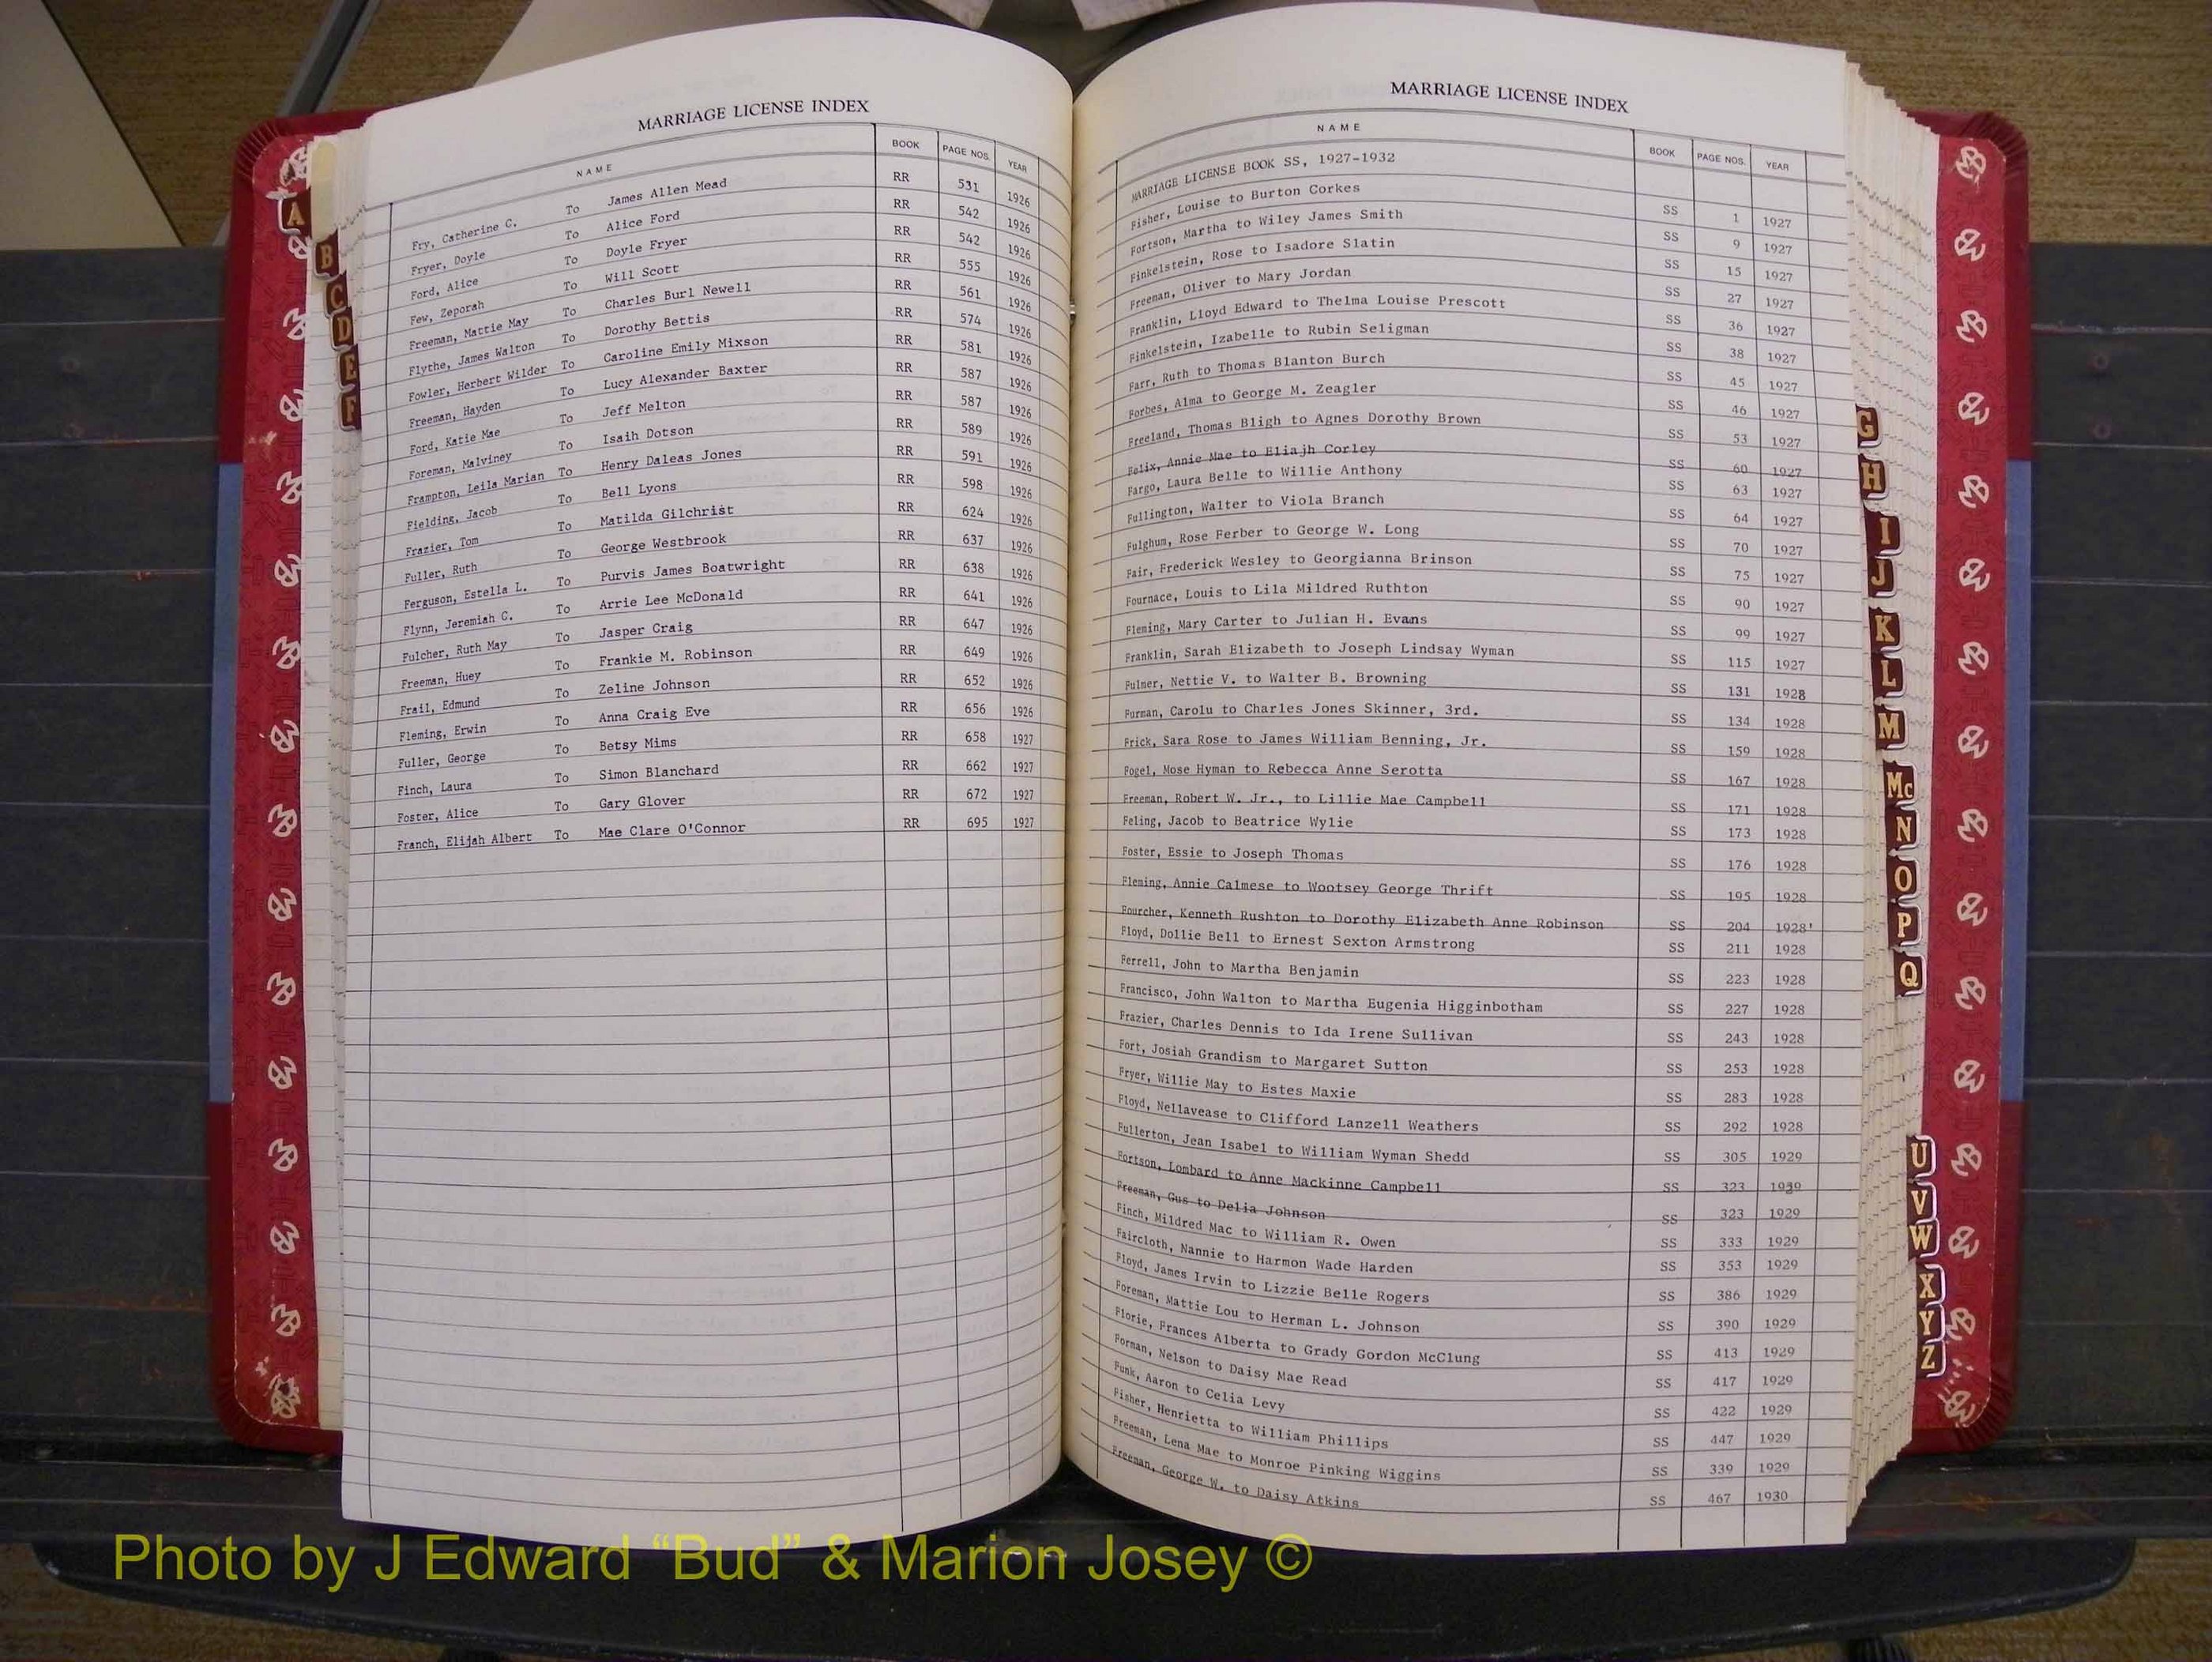 MARRIAGE LICENSE INDEX
NAME BOOK PAGE NOS. YEAR
Fry, Catherine C. To James Allen Mead RR 531 1926
Fryer, Doyle To Alice Ford RR 542 1926
Ford, Alice To Doyle Fryer RR 542 1926
Few, Zeporah To Will Scott RR 555 1926
Freeman, Mattie May To Charles Burl Newell RR 561 1926
Flythe, James Walton To Dorothy Bettis RR 574 1926
Fowler, Herbert Wilder To Caroline Emily Mixson RR 581 1926
Freeman, Hayden To Lucy Alexander Baxter RR 587 1926
Ford, Katie Mae To Jeff Melton RR 587 1926
Foreman, Malviney To Isaih Dotson RR 589 1926
Frampton, Leila Marian To Henry Daleas Jones RR 591 1926
Fielding, Jacob To Bell Lyons RR 598 1926
Frazier, Tom To Matilda Gilchrist RR 624 1926
Fuller, Ruth To George Westbrook RR 637 1926
Ferguson, Estella L. To Purvis James Boatwright RR 638 1926
Flynn, Jeremiah C. To Arrie Lee McDonald RR 641 1926
Fulcher, Ruth May To Jasper Craig RR 647 1926
Freeman, Huey To Frankie M. Robinson RR 649 1926
Frail, Edmund To Zeline Johnson RR 652 1926
Fleming, Erwin To Anna Craig Eve RR 656 1926
Fuller, George To Betsy Mims RR 658 1927
Finch, Laura To Simon Blanchard RR 662 1927
Foster, Alice To Gary Glover RR 672 1927
Franch, Elijah Albert To Mae Clare O'Connor RR 695 1927
A
B
C
D
E
F
MARRIAGE LICENSE INDEX
NAME BOOK PAGE NOS. YEAR
MARRIAGE LICENSE BOOK SS, 1927-1932
Fisher, Louise to Burton Corkes SS 1 1927
Fortson, Martha to Wiley James Smith SS 9 1927
Finkelstein, Rose to Isadore Slatin SS 15 1927
Freeman, Oliver to Mary Jordan SS 27 1927
Franklin, Lloyd Edward to Thelma Louise Prescott SS 36 1927
Finkelstein, Izabelle to Rubin Seligman SS 38 1927
Farr, Ruth to Thomas Blanton Burch SS 45 1927
Forbes, Alma to George M. Zeagler SS 46 1927
Freeland, Thomas Bligh to Agnes Dorothy Brown SS 53 1927
Felix, Annie Mae to Eliajh Corley SS 60 1927
Fargo, Laura Belle to Willie Anthony SS 63 1927
Fullington, Walter to Viola Branch SS 64 1927
Fulghum, Rose Ferber to George W. Long SS 70 1927
Fair, Frederick Wesley to Georgianna Brinson SS 75 1927
Fournace, Louis to Lila Mildred Ruthton SS 90 1927
Fleming, Mary Carter to Julian H. Evans SS 99 1927
Franklin, Sarah Elizabeth to Joseph Lindsay Wyman SS 115 1927
Fulmer, Nettie V. to Walter B. Browning SS 131 1928
Furman, Carolu to Charles Jones Skinner, 3rd. SS 134 1928
Frick, Sara Rose to James William Benning, Jr. SS 159 1928
Fogel, Mose Hyman to Rebecca Anne Serotta SS 167 1928
Freeman, Robert W. Jr., to Lillie Mae Campbell SS 171 1928
Feling, Jacob to Beatrice Wylie SS 173 1928
Foster, Essie to Joseph Thomas SS 176 1928
Fleming, Annie Calmese to Wootsey George Thrift SS 195 1928
Fourcher, Kenneth Rushton to Dorothy Elizabeth Anne Robinson SS 204 1928'
Floyd, Dollie Bell to Ernest Sexton Armstrong SS 211 1928
Ferrell, John to Martha Benjamin SS 223 1928
Francisco, John Walton to Martha Eugenia Higginbotham SS 227 1928
Frazier, Charles Dennis to Ida Irene Sullivan SS 243 1928
Fort, Josiah Grandism to Margaret Sutton SS 253 1928
Fryer, Willie May to Estes Maxie SS 283 1928
Floyd, Nellavease to Clifford Lanzell Weathers SS 292 1928
Fullerton, Jean Isabel to William Wyman Shedd SS 305 1929
Fortson, Lombard to Anne Mackinne Campbell SS 323 1939
Freeman, Gus to Delia Johnson SS 323 1929
Finch, Mildred Mac to William R. Owen SS 333 1929
Faircloth, Nannie to Harmon Wade Harden SS 353 1929
Floyd, James Irvin to Lizzie Belle Rogers SS 386 1929
Foreman, Mattie Lou to Herman L. Johnson SS 390 1929
Florie, Frances Alberta to Grady Gordon McClung SS 413 1929
Forman, Nelson to Daisy Mae Read SS 417 1929
Funk, Aaron to Celia Levy SS 422 1929
Fisher, Henrietta to William Phillips SS 447 1929
Freeman, Lena Mae to Monroe Pinking Wiggins SS 339 1929
Freeman, George W. to Daisy Atkins SS 467 1930
G
H
I
J
K
L
M
Mc
N
O
P
Q
U
V
W
X
Y
Z
Photo by J Edward “Bud” & Marion Josey ©